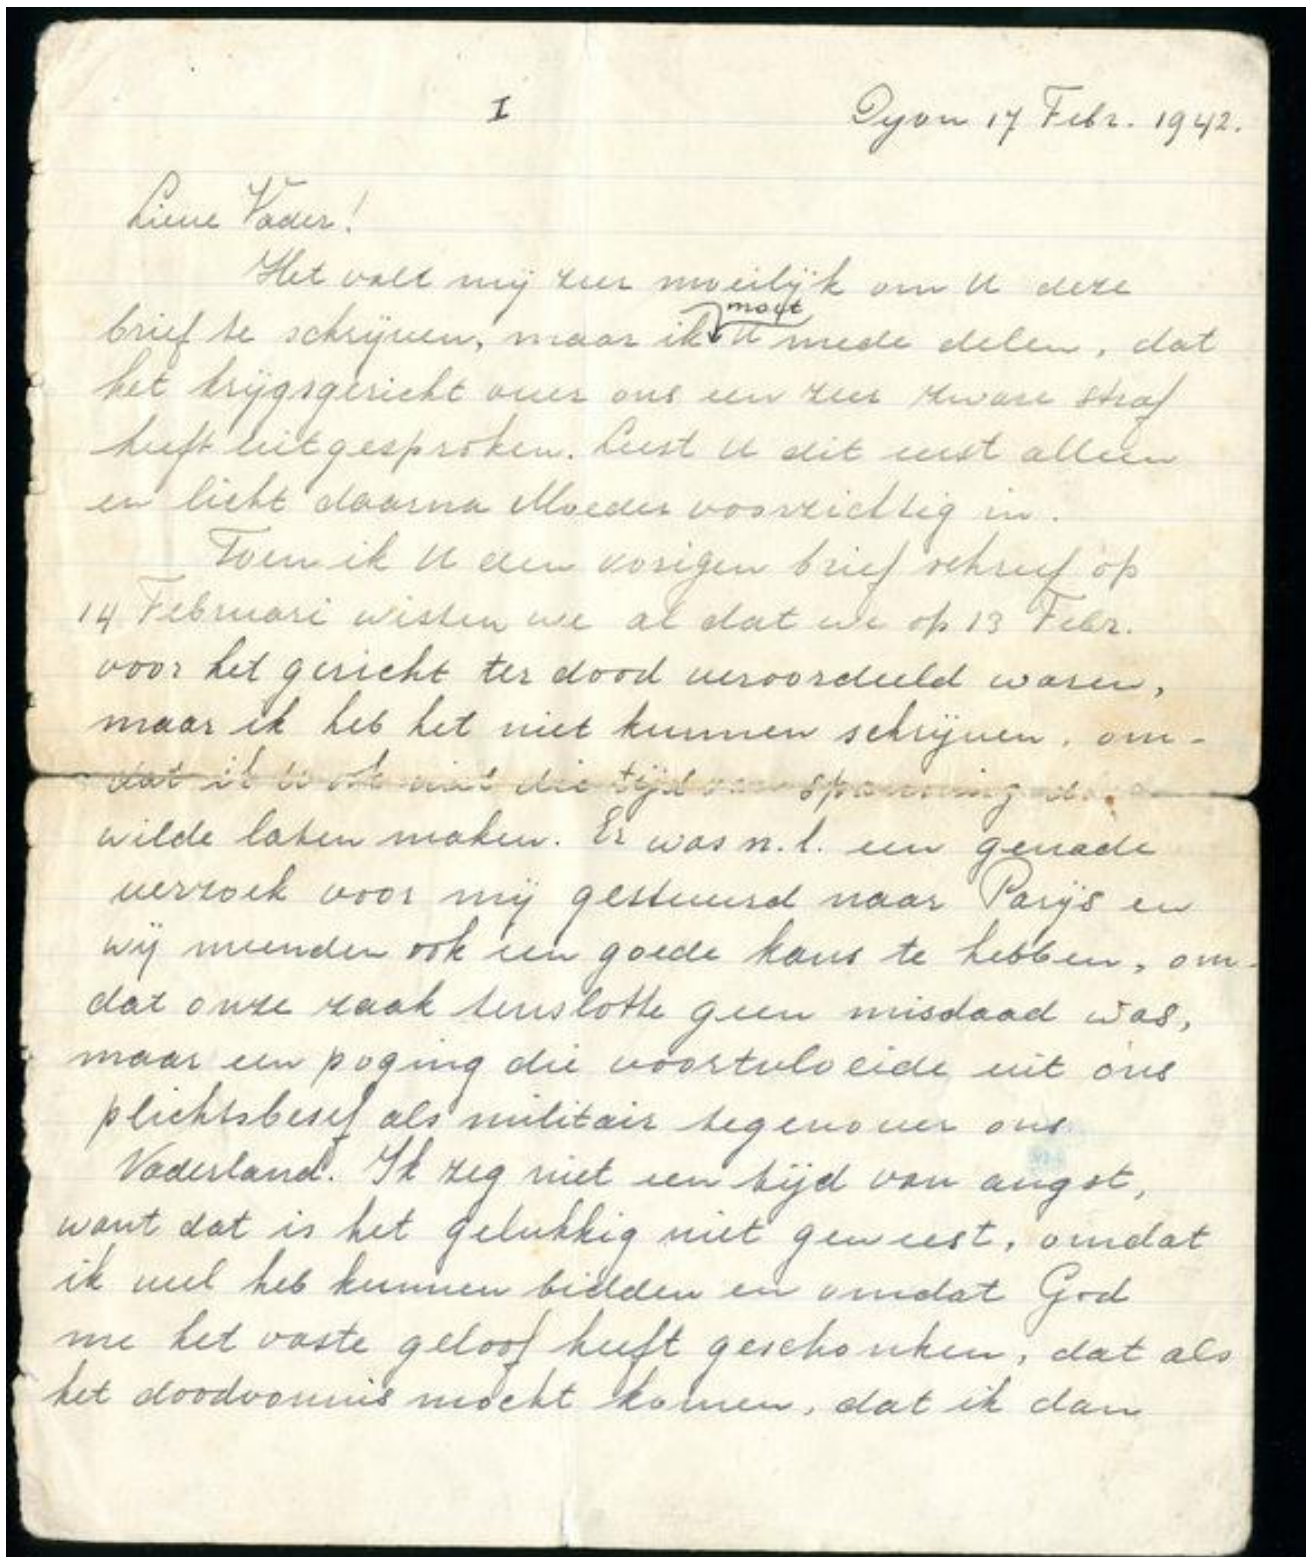 I
Dyon 17 Febr. 1942.
Lieve Vader!
Het valt mij zeer moeilijk om U deze
moet
brief te schrijven, maar ik U mede delen, dat
het krijgsgericht over ons een zeer zware straf
heeft uitgesproken. Leest U dit eerst alleen
en licht daarna Moeder voorzichtig in.
Toen ik U den vorigen brief schreef op
14 Februari wisten we al dat we op 13 Febr.
voor het gericht ter dood veroordeeld waren,
maar ik heb het niet kunnen schrijven, om-
dat ik U ook niet die tijd van spanning
wilde laten maken. Er was n.l. een genade
verzoek voor mij gestuurd naar Parijs en
wij meenden ook een goede kans te hebben, om-
dat onze zaak tenslotte geen misdaad was,
maar een poging die voortvloeide uit ons
plichtsbesef als militair tegenover ons
Vaderland. Ik zeg niet een tijd van angst,
want dat is het gelukkig niet geweest, omdat
ik veel heb kunnen bidden en omdat God
me het vaste geloof heeft geschonken, dat als
het doodvonnis mocht komen, dat ik dan